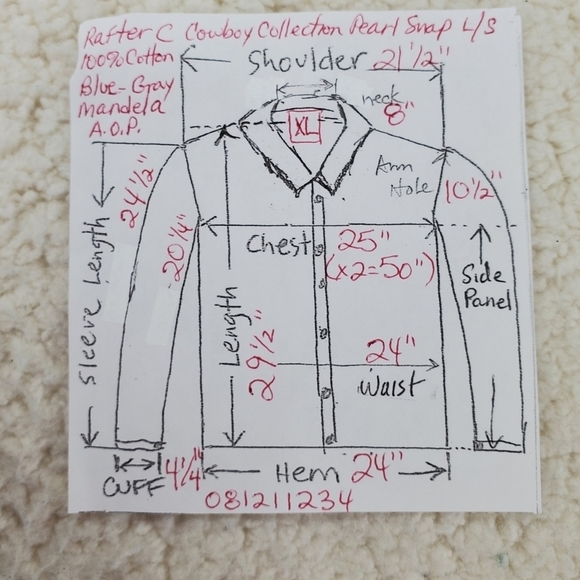 Rafter C Cowboy Collection Pearl Snap L/S
100% Cotton
Blue-Gray
Mandela
A.O.P.
Shoulder 21 1/2"
neck
8"
XL
Arm
Hole
10 1/2"
24 1/2"
20 1/4"
Sleeve Length
Chest 25"
(x2=50")
Side
Panel
Length
29 1/2"
24"
Waist
CUFF
4 1/4"
Hem 24"
081211234